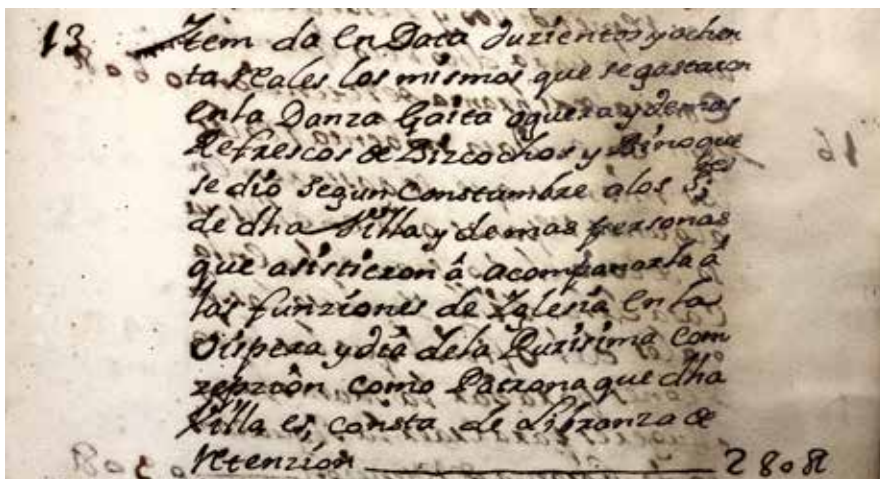 13 Item da en Data duzientos y ochen
ta reales los mismos que se gastaron
en la Danza Gaita oguera y demas
Refrescos de Bizcochos y Bino que
se dio segun Constumbre â los S.res
de dha Villa y demas personas
que asistieron â acompañarla â
las funziones de Yglesia en la
Vispera y dia de la Purisima Com
zepzion como Patrona que dha
Villa es, consta de Libranza de
Retenzion 280 R